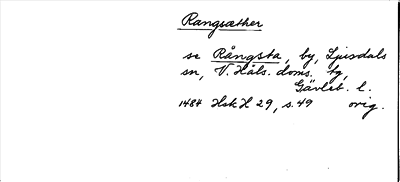 Rangsæther
se Rångsta, by, Ljusdals
sn, V. Häls. doms. tg,
Gävleb. l.
1484 Hsk H 29, s. 49 orig.